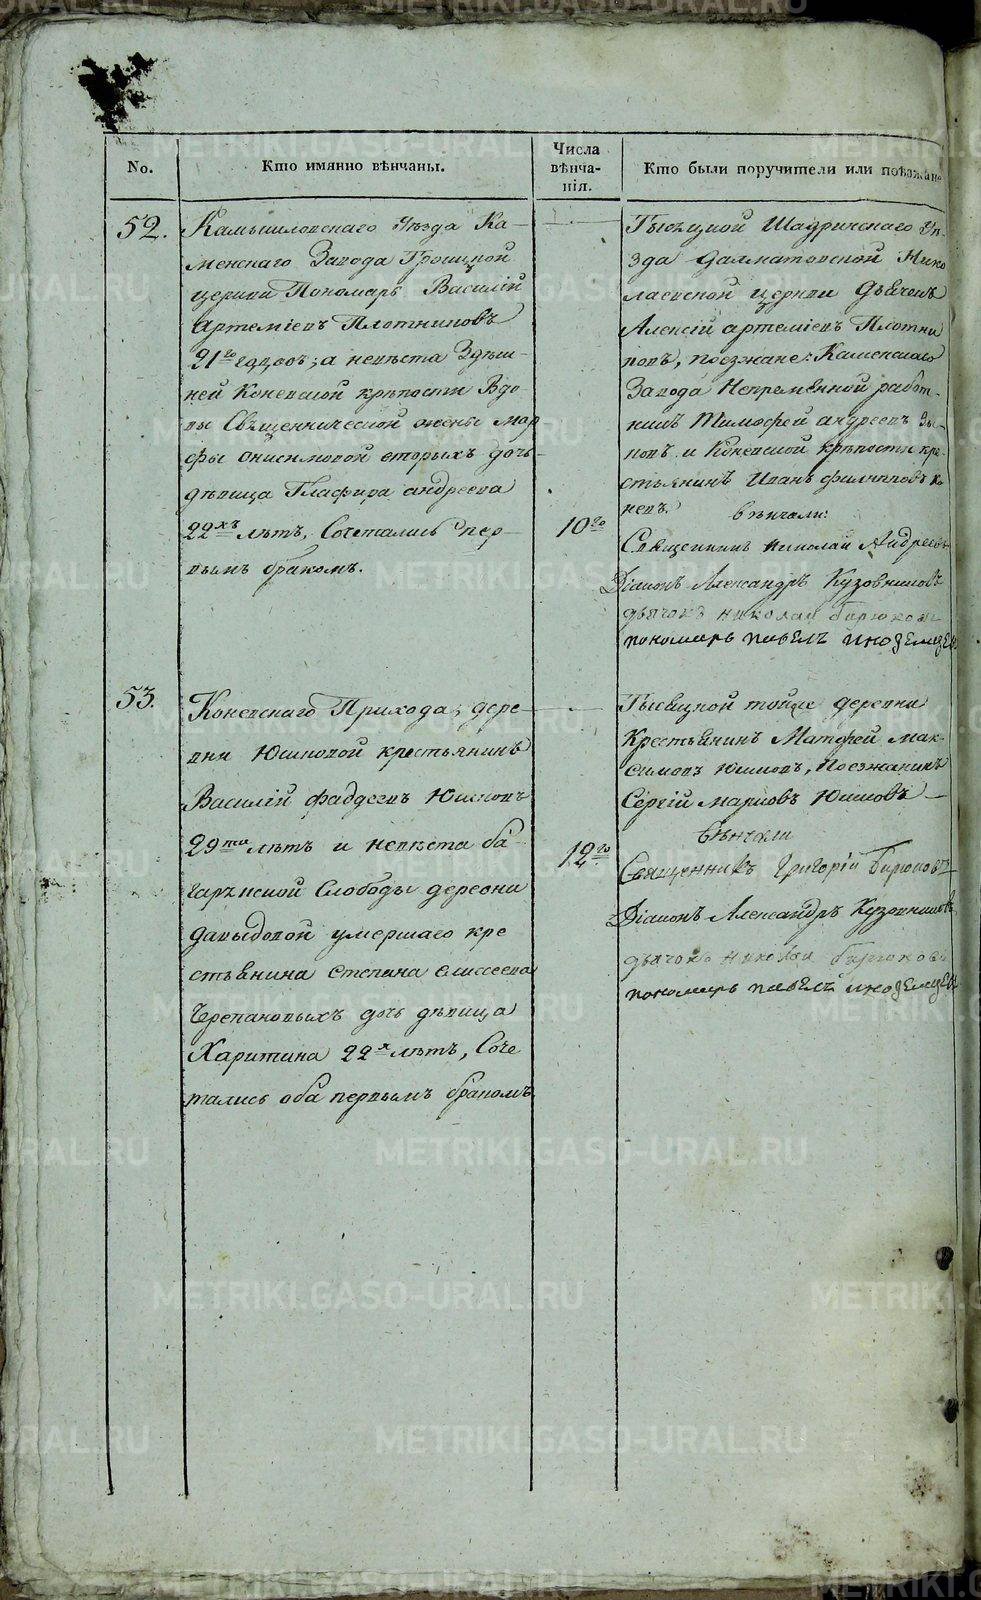 No.
Кто имянно вѣнчаны.
Числа
вѣнча-
нія.
Кто были поручители или поѣзжане
52.
Камышловскаго Уѣзда Ка-
менскаго Завода Троицкой
церкви Пономарь Василій
Артеміевъ Плотниковъ
21го годовъ; а невѣста Здѣш-
ней Коневской крѣпости Вдо-
вы Священнической жены Мар
фы Онисимовой вторыхъ дочь
дѣвица Глафира андреева
22хъ лѣтъ, Сочетались пер-
вымъ бракомъ.
10го
Тысяцкой Шадринскаго Уѣ
зда Далматовской Нико
лаевской церкви Дьячокъ
Алексій артеміевъ Плотни
ковъ, поезжане: Каменскаго
Завода Непременной работ-
никъ Тимофей андреевъ
и Коневской крѣпости кре-
стьянинъ Иванъ филипповъ Ко
невъ. вѣнчали:
Священникъ Николай Андреевъ
Діаконъ Александръ Кузовниковъ
дьячокъ николай Бирюковъ
пономарь павелъ иноземцевъ
53.
Коневскаго Прихода, дере-
вни Юшковой крестьянинъ
Василій фаддеевъ Юшковъ
29ти лѣтъ и невѣста ба-
гаряцкой Слободы деревни
давыдовой умершаго кре
стьянина степана елисеева
Черепановыхъ дочь дѣвица
Харитина 22х лѣтъ, Соче
тались оба первымъ бракомъ
12го
Тысяцкой тойже деревни
Крестьянинъ Матфей мак-
симовъ Юшковъ, Поезжанинъ
Сергій марковъ Юшковъ
вѣнчали
Священникъ Григорій Бирюковъ
Діаконъ Александръ Кузовниковъ
дьячокъ николай бирюковъ
пономарь павелъ иноземцевъ
METRIKI.GASO-URAL.RU